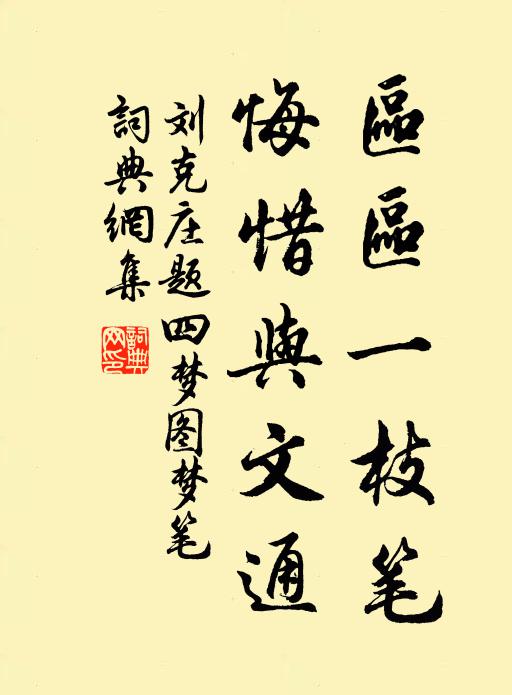 區區一枝笔
悔惜與文通
刘克庄题四梦图梦笔
詞典網集
詞典網印